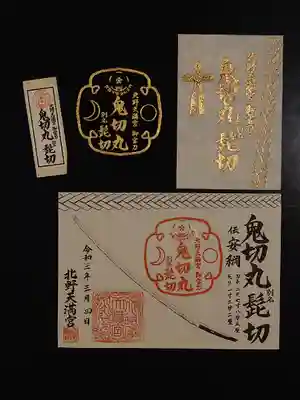 鬼切丸
髭切
北野天満宮 御宝刀
鬼切丸
別名
髭切
北野天満宮 御宝刀
鬼切丸
別名
髭切
鬼切丸 別名 髭切
伝安綱
北野天満宮 御宝刀
鬼切丸
別名
髭切
令和二年三月四日
北野天満宮